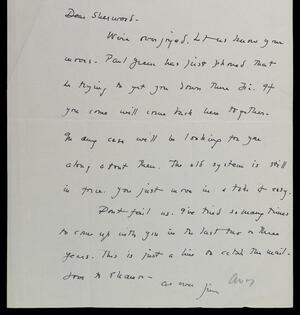 Dear Sherwood -
We're overjoyed. Let us know your
moves. Paul Green has just phoned that
he trying to get you down there Fri. If
you come will come back here together.
In any case we'll be looking for you
along about then. The old system is still
in force. You just move in & take it easy.
Don't fail us. I've tried so many times
to come up with you in the last two or three
years. This is just a line to catch the mail.
Love to Eleanor -
as ever Jim